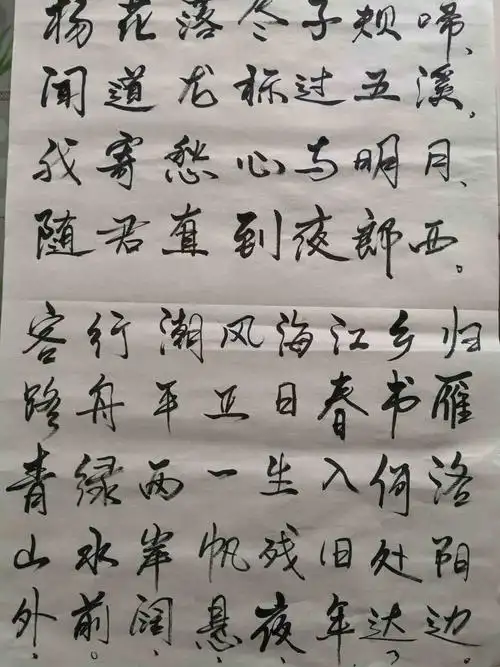 杨花落尽子规啼,
闻道龙标过五溪,
我寄愁心与明月、
随君直到夜郎西。
客路青山外、
行舟绿水前。
潮平两岸阔、
风正一帆悬。
海日生残夜、
江春入旧年。
乡书何处达?
归雁洛阳边。